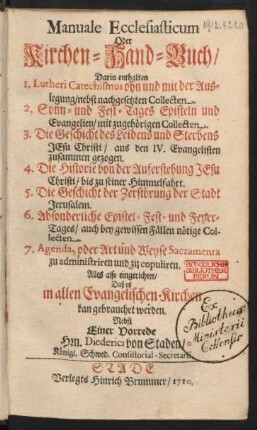 Manuale Ecclesiasticum
Oder
Kirchen-Hand-Buch/
Darin enthalten
1. Lutheri Catechismus ohn und mit der Aus-
legung/nebst nachgesetzten Collecten.
2. Sonn- und Fest-Tages Episteln und
Evangelien/ mit zugehörigen Collecten.
3. Die Geschicht des Leidens und Sterbens
JEsu Christi/ aus den IV. Evangelisten
zusammen gezogen.
4. Die Historie von der Auferstehung JEsu
Christi/ bis zu seiner Himmelfahrt.
5. Die Geschicht der Zerstörung der Stadt
Jerusalem.
6. Absonderliche Epistel-Fest- und Feyer-
Tages/ auch bey gewissen Fällen nötige Col-
lecten.
7. Agenda, oder Art und Weyse Sacramenta
zu administriren und zu copuliren.
Alles also eingerichtet/
Daß es
in allen Evangelischen Kirchen
kan gebrauchet werden.
Nebst
Einer Vorrede
Hrn. Diederici von Staden/
Königl. Schwed. Consistorial-Secretarii.
STADE
Verlegts Hinrich Brummer/ 1710.
BIBLIOTHEK
BERLIN
Ex
Bibliotheca
Ministerii